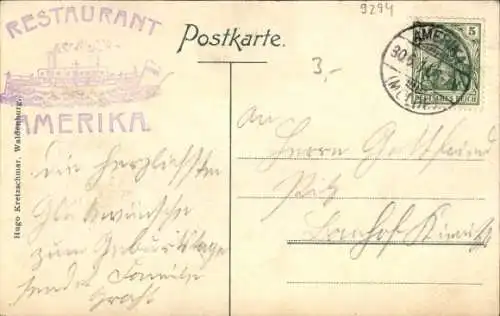 RESTAURANT
AMERIKA.
Postkarte.
9294
3,-
5
AMERIKA
30.6
DEUTSCHES REICH
Hugo Kretzschmar, Waldenburg.
Die herzlichsten
Glückwünsche
zum Geburtstage
sendet Familie
An
Herrn Gottfried
Bahnhof